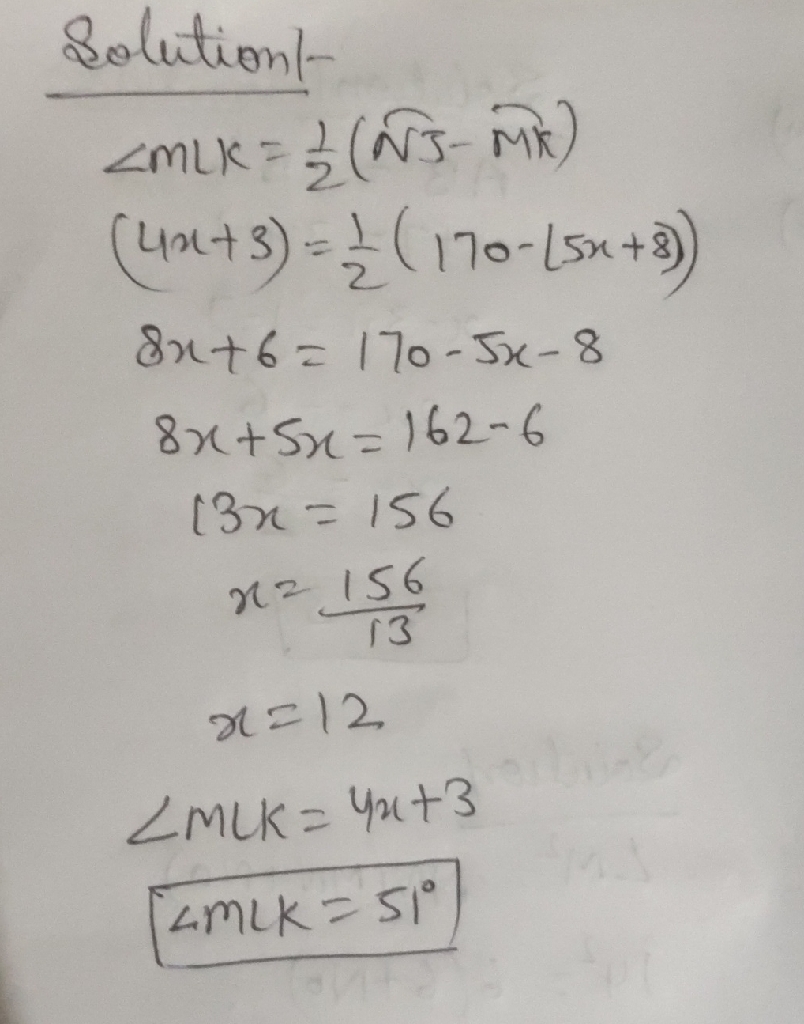 Solution:-
∠MLK = 1/2 (NJ - MK)
(4x+3) = 1/2 (170-(5x+8))
8x+6 = 170-5x-8
8x+5x = 162-6
13x = 156
x = 156/13
x = 12
∠MLK = 4x+3
∠MLK = 51°